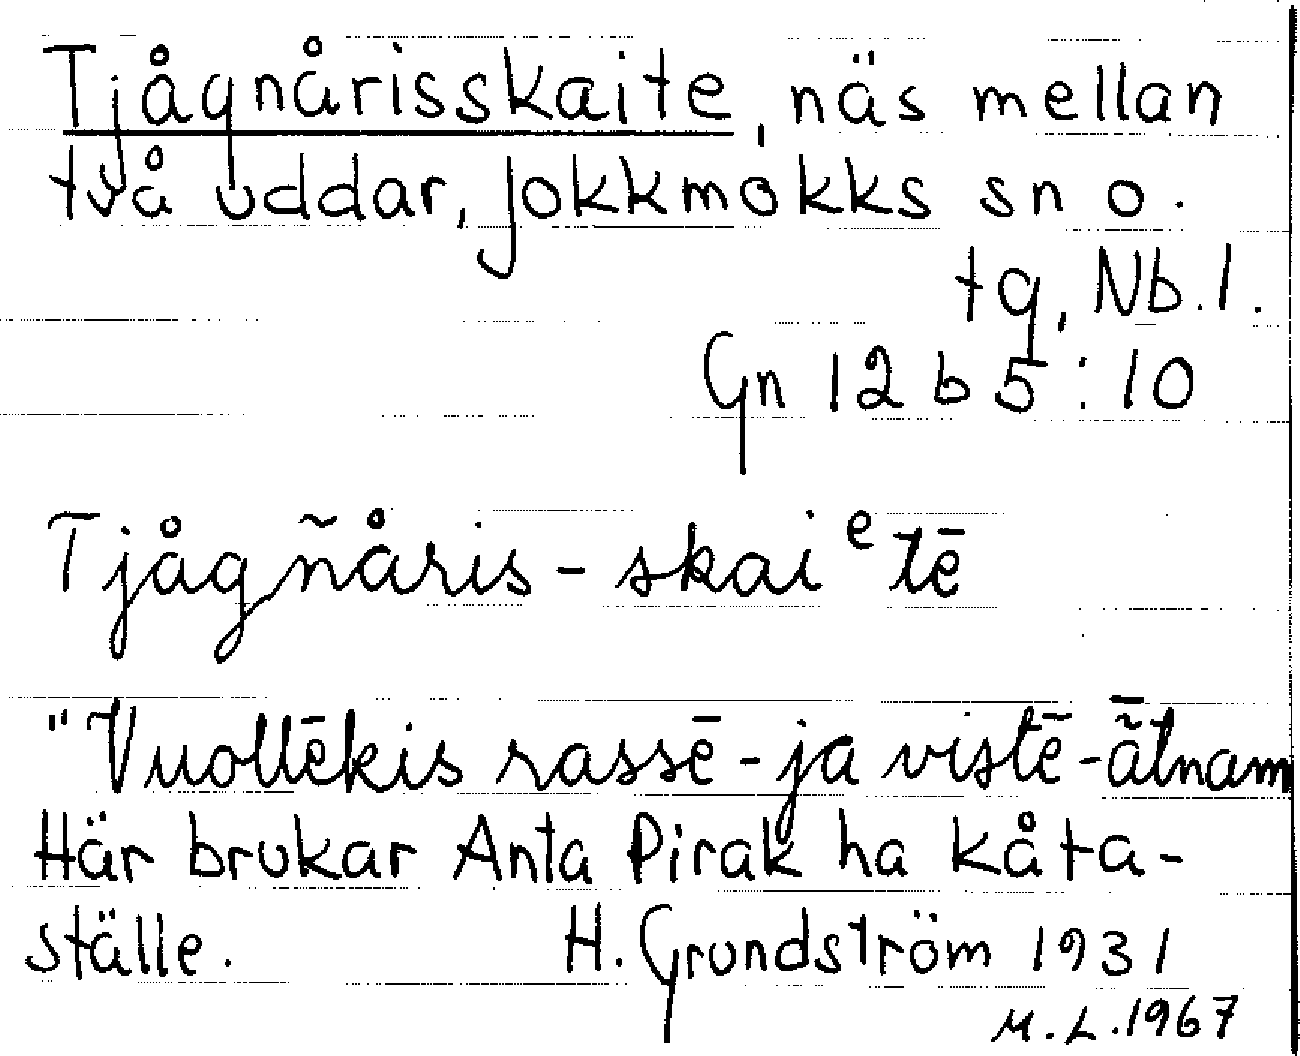 Tjågnårisskaite, näs mellan
två uddar, Jokkmokks sn o.
tg, Nb. l.
Gn 12 b 5 : 10
Tjågñåris - skaiᵉtē
"Vuollēkis rassē - ja vistē - ā̃tnam
Här brukar Anta Pirak ha kåta-
ställe. H. Grundström 1931
M. L. 1967